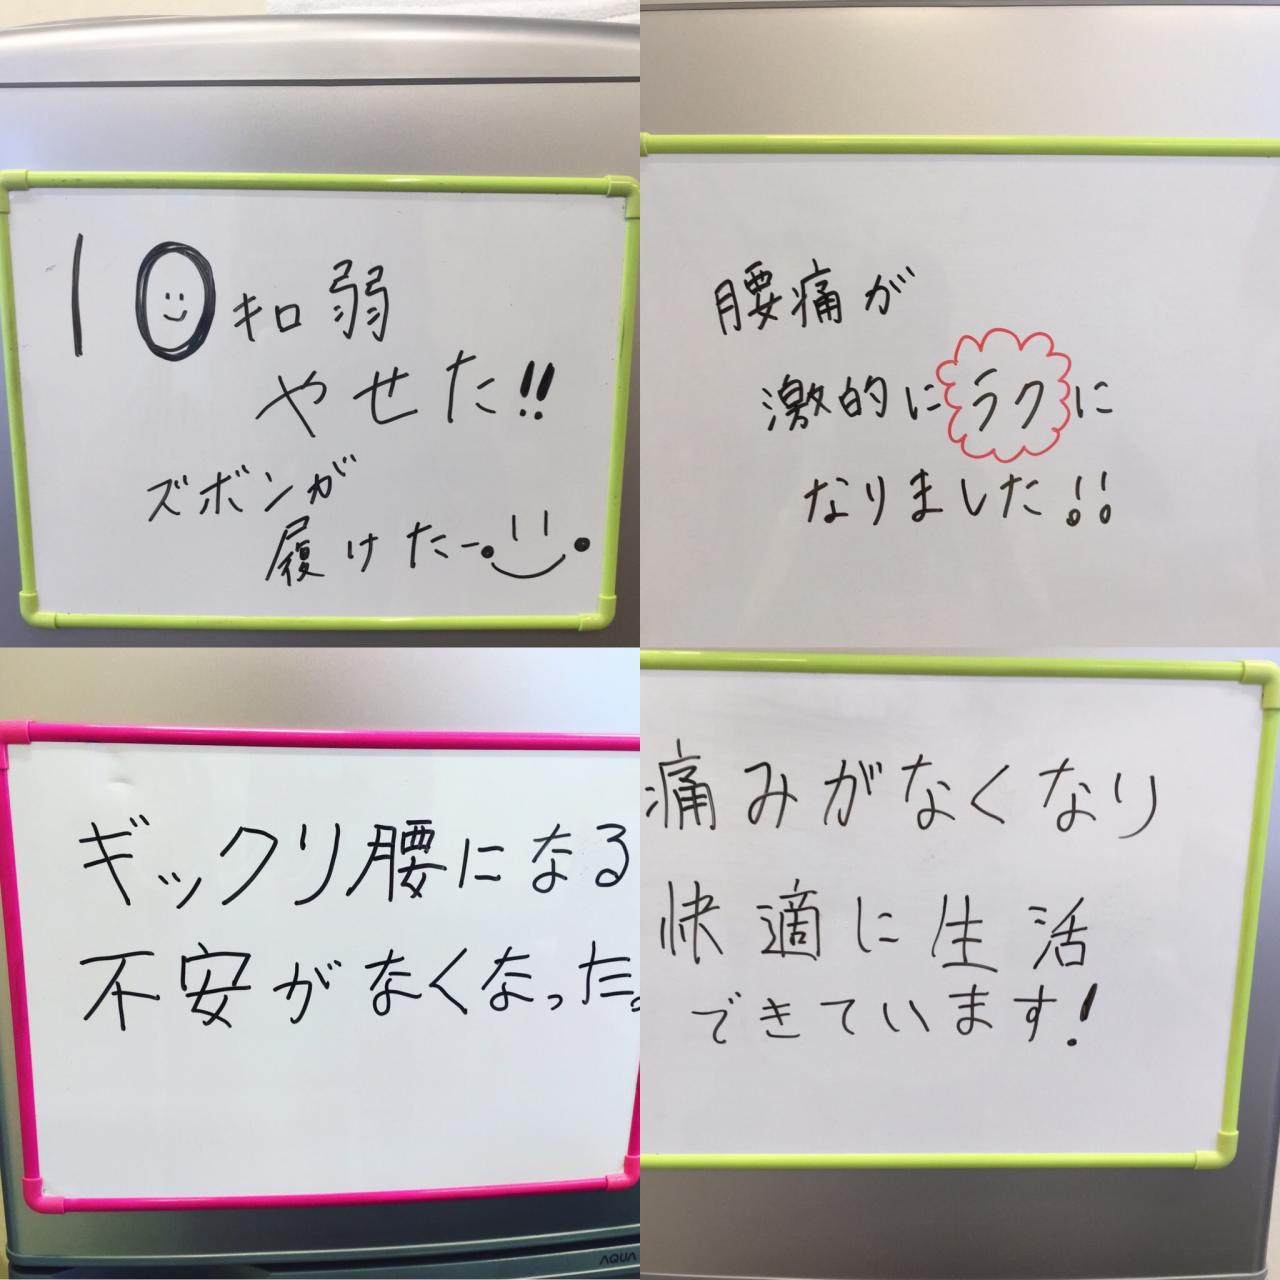 10キロ弱
やせた!!
ズボンが
履けたー
腰痛が
激的にラクに
なりました!!
ギックリ腰になる
不安がなくなった。
痛みがなくなり
快適に生活
できています!
AQUA